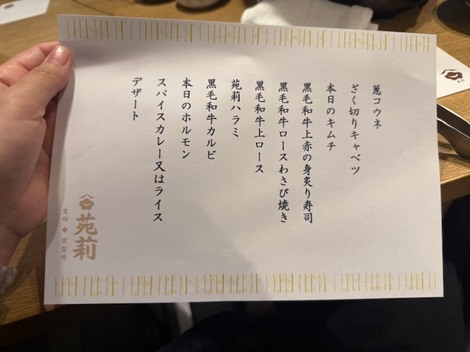 葱コウネ
ざく切りキャベツ
本日のキムチ
黒毛和牛上赤の身炙り寿司
黒毛和牛ロースわさび焼き
黒毛和牛上ロース
苑莉ハラミ
黒毛和牛カルビ
本日のホルモン
スパイスカレー又はライス
デザート
苑莉